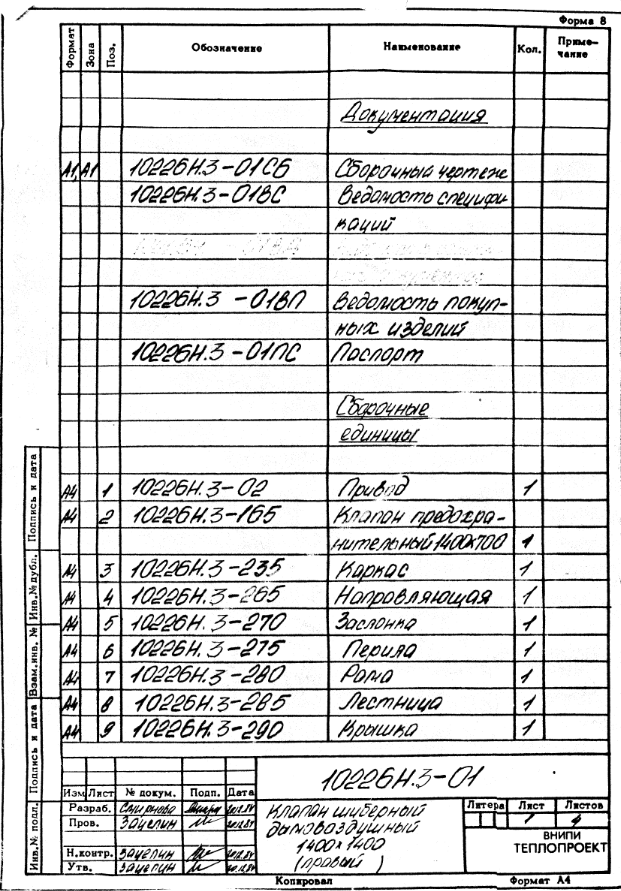 Форма 8
Формат Зона Поз. Обозначение Наименование Кол. Приме-
чание
Документация
А1 А1 10226Н.3-01СБ Сборочный чертеж
10226Н.3-01ВС Ведомость специфи
каций
10226Н.3 -01ВП Ведомость покуп-
ных изделий
10226Н.3-01ПС Паспорт
Сборочные
единицы
А4 1 10226Н.3-02 Привод 1
А4 2 10226Н.3-165 Клапан предохра-
нительный 1400х700 1
А4 3 10226Н.3-235 Каркас 1
А4 4 10226Н.3-265 Направляющая 1
А4 5 10226Н.3-270 Заслонка 1
А4 6 10226Н.3-275 Перила 1
А4 7 10226Н.3-280 Рама 1
А4 8 10226Н.3-285 Лестница 1
А4 9 10226Н.3-290 Крышка 1
Инв.№ подл. Подпись и дата Взам.инв. № Инв.№ дубл. Подпись и дата
10226Н.3-01
Изм Лист № докум. Подп. Дата
Разраб. Смирнова
Пров. Зацепин
Н.контр. Зацепин
Утв. Зацепин
Клапан шиберный
дымовоздушный
1400х1400
(правый)
Литера Лист Листов
1 4
ВНИПИ
ТЕПЛОПРОЕКТ
Копировал Формат А4